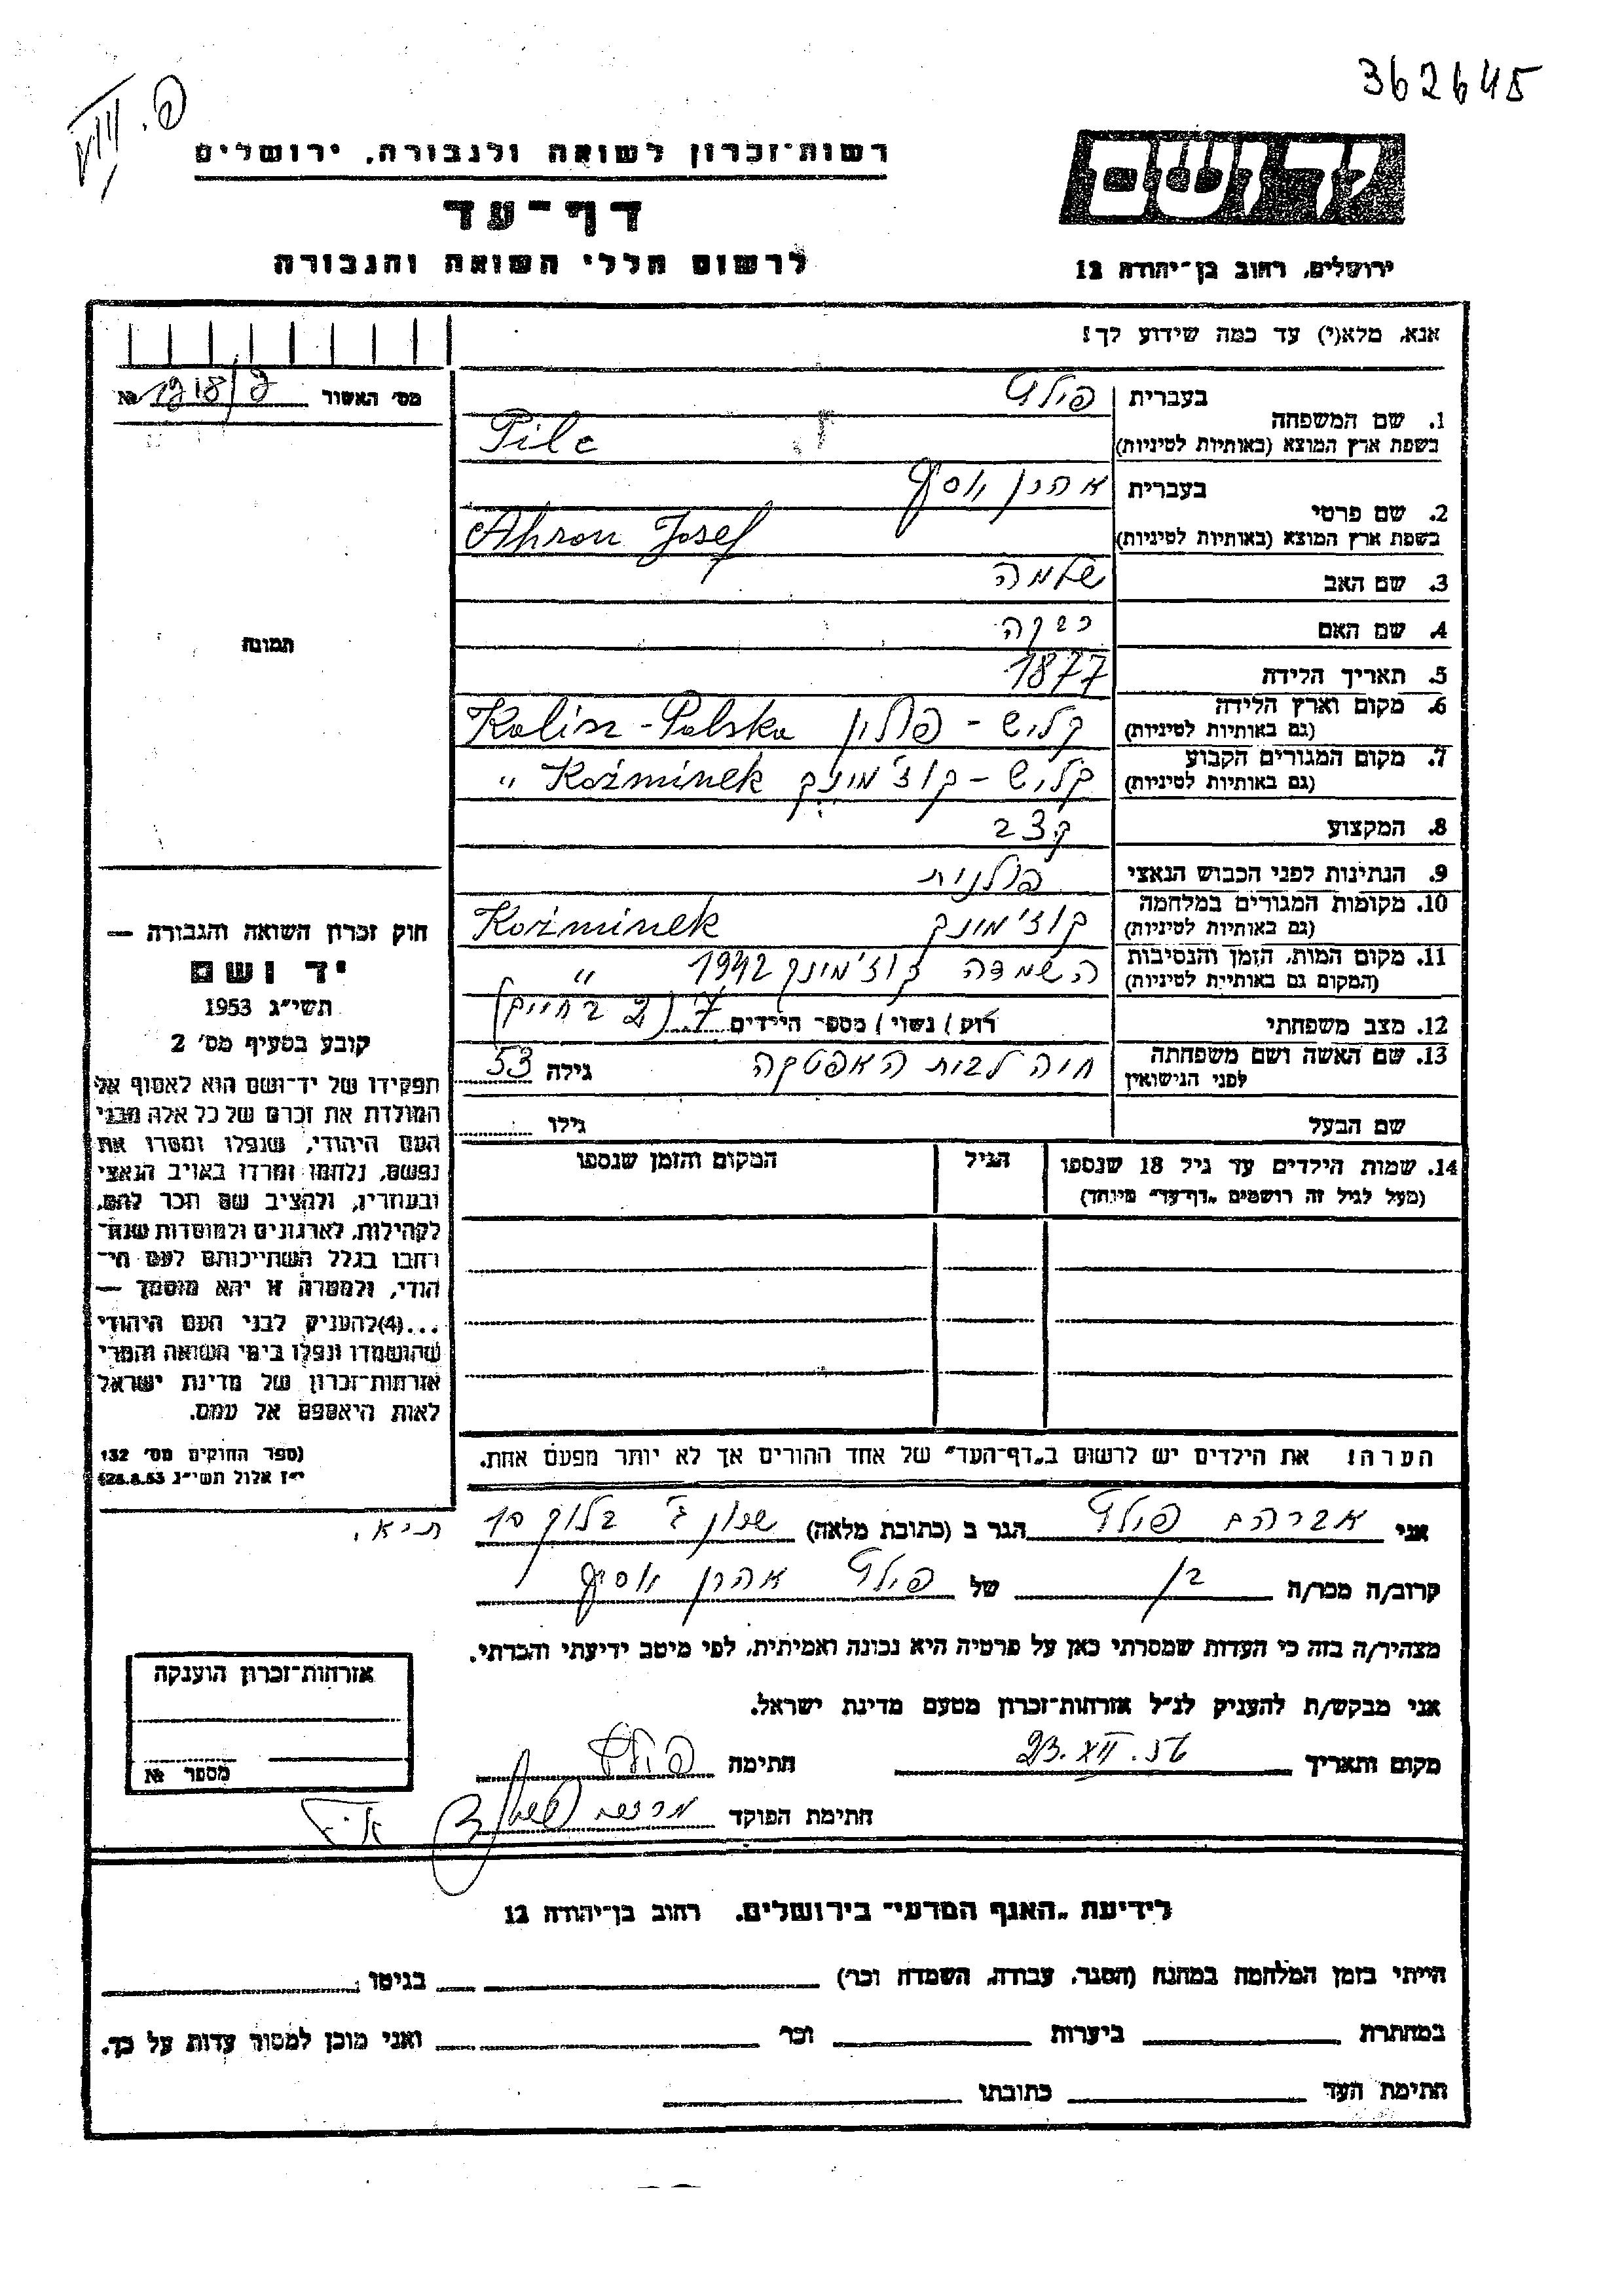 362645
VIII פ.
יד ושם
רשות־זכרון לשואה ולגבורה, ירושלים
דף־עד
לרשום חללי השואה והגבורה
ירושלים, רחוב בן־יהודה 12
אנא, מלא(י) עד כמה שידוע לך!
מס' האשור №
1. שם המשפחה
בעברית פילץ
בשפת ארץ המוצא (באותיות לטיניות) Pilc
2. שם פרטי
בעברית אהרן יוסף
בשפת ארץ המוצא (באותיות לטיניות) Ahron Josef
3. שם האב שלמה
4. שם האם
5. תאריך הלידה 1877
6. מקום וארץ הלידה
(גם באותיות לטיניות) קליש - פולין Kalisz - Polska
7. מקום המגורים הקבוע
(גם באותיות לטיניות) קליש - קוז'מינק Koźminek "
8. המקצוע קצב
9. הנתינות לפני הכבוש הנאצי פולנית
10. מקומות המגורים במלחמה
(גם באותיות לטיניות) קוז'מינק Koźminek
11. מקום המות, הזמן והנסיבות
(המקום גם באותיות לטיניות) השמדה קוז'מינק 1942 "
12. מצב משפחתי רוק / נשוי / מספר הילדים 7 (2 בחיים)
13. שם האשה ושם משפחתה
לפני הנישואין חיה לבית האפטקה גילה 53
שם הבעל גילו
14. שמות הילדים עד גיל 18 שנספו
(מעל לגיל זה רושמים "דף־עד" מיוחד)
הגיל
המקום והזמן שנספו
הערה: את הילדים יש לרשום ב"דף־העד" של אחד ההורים אך לא יותר מפעם אחת.
תמונה
חוק זכרון השואה והגבורה —
יד ושם
תשי"ג 1953
קובע בסעיף מס' 2
תפקידו של יד־ושם הוא לאסוף אל
המולדת את זכרם של כל אלה מבני
העם היהודי, שנפלו ומסרו את
נפשם, נלחמו ומרדו באויב הנאצי
ובעוזריו, ולהציב שם וזכר להם,
לקהילות, לארגונים ולמוסדות שנח־
רבו בגלל השתייכותם לעם הי־
הודי, ולמטרה זו יהא מוסמך —
...(4) להעניק לבני העם היהודי
שהושמדו ונפלו בימי השואה והמרי
אזרחות־זכרון של מדינת ישראל
לאות היאספם אל עמם.
(ספר החוקים מס' 132
י"ז אלול תשי"ג 28.8.53)
אני אברהם פילץ הגר ב (כתובת מלאה) שכון ג' בלוק 10 ת"א.
קרוב/ה מכר/ה בן של פילץ אהרן יוסף
מצהיר/ה בזה כי העדות שמסרתי כאן על פרטיה היא נכונה ואמיתית, לפי מיטב ידיעתי והכרתי.
אני מבקש/ת להעניק לנ"ל אזרחות־זכרון מטעם מדינת ישראל.
מקום ותאריך 23.XII.56 חתימה פילץ
חתימת הפוקד
אזרחות־זכרון הוענקה
מספר №
לידיעת "האגף המדעי" בירושלים, רחוב בן־יהודה 12
הייתי בזמן המלחמה במחנה (הסגר, עבודה, השמדה וכו') בגיטו
במחתרת ביערות וכו' ואני מוכן למסור עדות על כך.
חתימת העד כתובתו